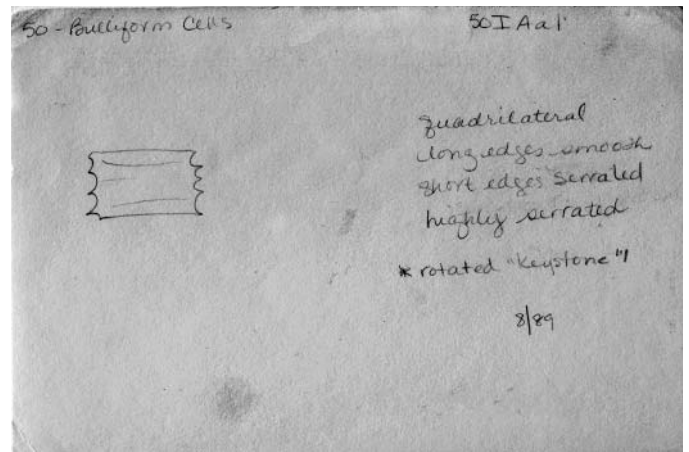 50 - Bulliform Cells
50 I A a 1
quadrilateral
long edges smooth
short edges serrated
highly serrated
* rotated "keystone"
8/89